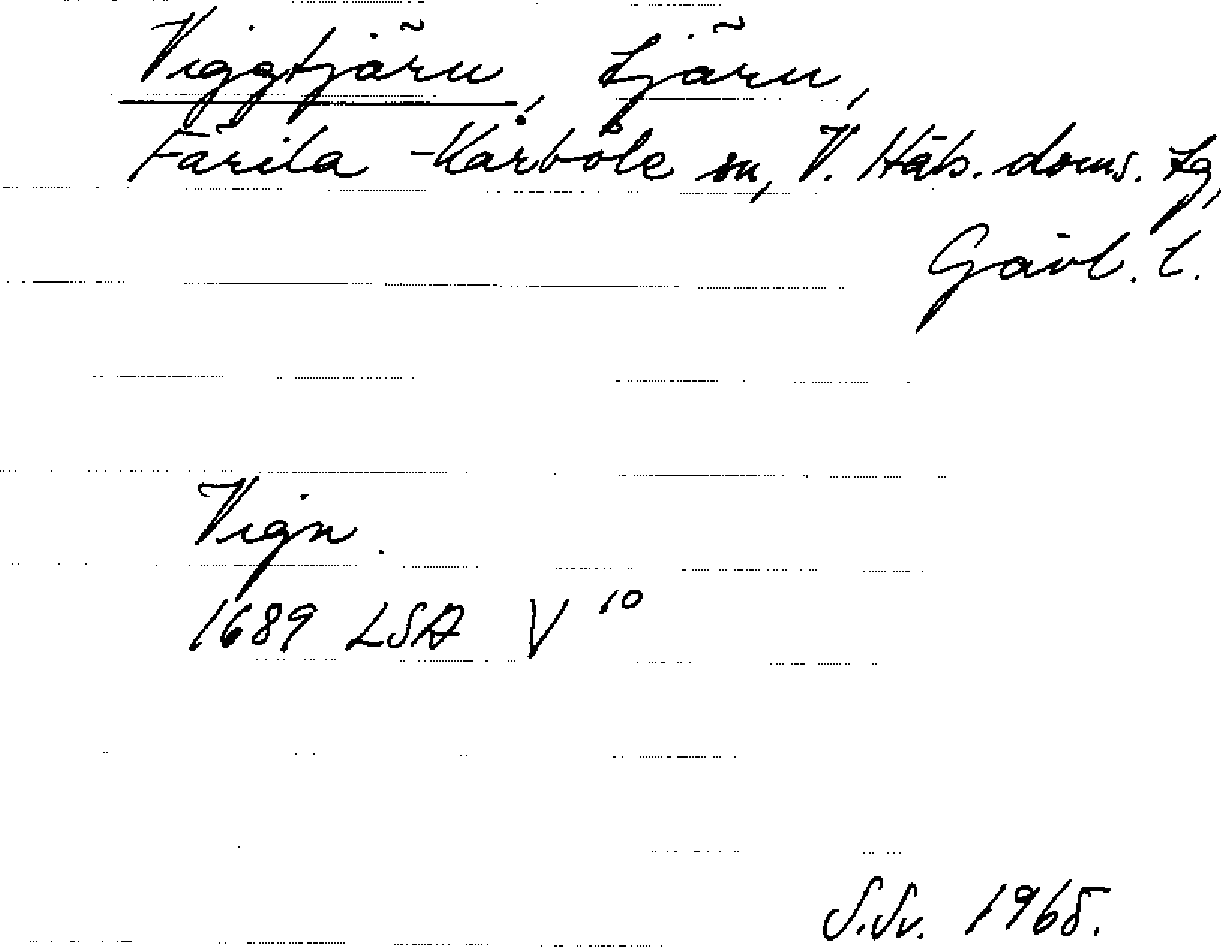 Viggtjärn, tjärn,
Färila-Kårböle sn, V. Häls. doms. tg,
Gävl. l.
Vign
1689 LSA V 10
S.Sv. 1965.